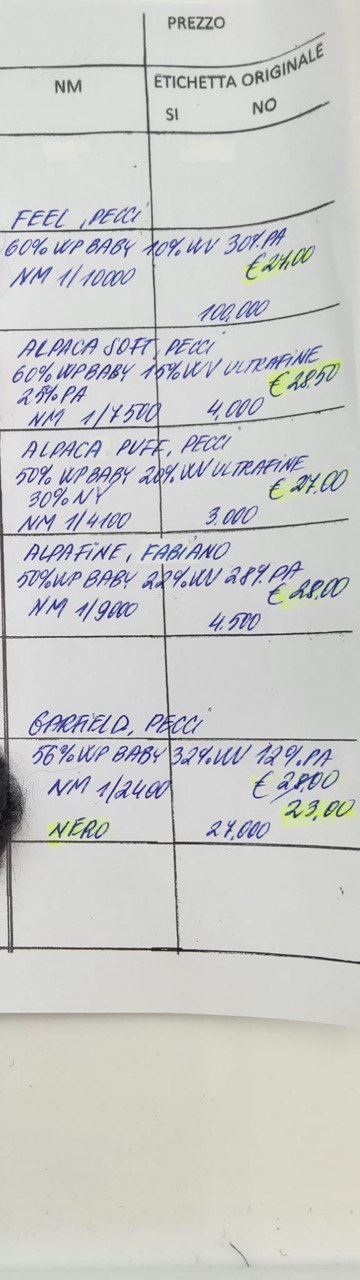 PREZZO
NM
ETICHETTA ORIGINALE
SI NO
FEEL, PECCI
60% WP BABY 10% WV 30% PA
NM 1/10000 €27,00
100,000
ALPACA SOFT, PECCI
60% WP BABY 15% WV ULTRAFINE
25% PA €28.50
NM 1/7500 4,000
ALPACA PUFF, PECCI
50% WP BABY 20% WV ULTRAFINE
30% NY €27.00
NM 1/4100 3.000
ALPAFINE, FABIANO
50% WP BABY 22% WV 28% PA
NM 1/9000 €28.00
4.500
GARFIELD, PECCI
56% WP BABY 32% WV 12% PA
NM 1/2400 € 28,00
23,00
NERO 27,000